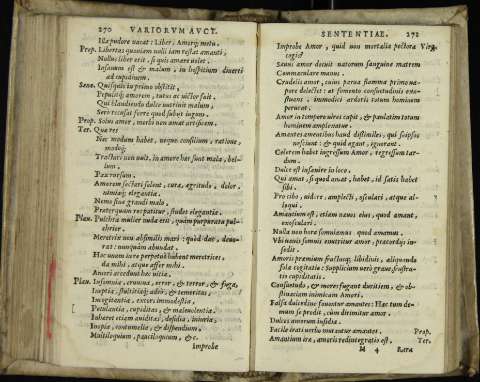 270 VARIORVM AVCT.
Ille pudore vacat: Liber, Amorq; metu.
Prop. Libertas quoniam nulli iam restat amanti,
Nullus liber erit, si quis amare volet.
Insanum est & malum, in hospitium diverti
ad cupidinem.
Sene. Quisquis in primo obstitit,
Pepulitq; amorem, tutus ac victor fuit.
Qui blandiendo dulce nutrivit malum,
Sero recusat ferre quod subiit iugum.
Prop. Solus amor, morbi non amat artificem.
Ter. Quæ res
Nec modum habet, neque consilium, ratione,
modoq;
Tractari non vult, in amore hæc sunt mala, bellum,
Pax rursum.
Amorem sectari solent, cura, ægritudo, dolor,
nimiaq; elegantia.
Nemo sine grandi malo,
Præterquam res patitur, studet elegantiæ.
Plav. Pulchra mulier nuda erit, quàm purpurata pulchrior.
Meretrix
mari: quod dat, devorat:
nunquam abundat.
Hæc unum in re perpetuò habent meretrices:
da mihi, atque affer mihi.
Amori accedunt hæc vitia.
Plav. Insomnia, ærumna, error, & terror, & fuga,
Ineptia, stultitiaq; adeò, & temeritas,
Incogitantia, excors immodestia,
Petulantia, cupiditas, & malevolentia.
Inhæret etiam aviditas, desidia, iniuria,
Inopia, contumelia, & dispendium,
Multiloquium, pauciloquium, &c.
Improbe
SENTENTIAE. 271
Improbe Amor, quid non mortalia pectora Virg.
cogis?
Sævus amor docuit natorum sanguine matrem
Commaculare manus.
Crudelis amor, cuius parva flamma primo vapore
delectat: at fomento consuetudinis exæstuans,
immodici ardoris totum hominem
perurat.
Amor in tempore vires capit, & paulatim totum
hominem
Amantes amentibus haud dissimiles, qui seipsos
nesciunt: & quid agant, ignorant.
Celerem habet ingressum Amor, regressum tardum.
Dulce est insanire in loco.
Qui amat, si quod amat, habet, id satis habet
sibi.
Pro cibo, videre, amplecti, osculari, atque alloqui.
Amantium est, etiam nævos eius, quod amant,
exosculari.
Nulla non hora somniamus quod amamus.
Vbi navis somnis enutritur amor, præcordijs insedit.
Amoris præmium fructusq; libidinis, aliquando
sola cogitatio: Supplicium verò grave frustratio
cupiditatis.
Consuetudo, & mores fugant duritiem, & obstinatam
inimicam Amori.
Falsa dulcedine fruuntur amantes: Hæc tum demum
se prodit, cùm dirimitur amor.
Dulces amorum insidiæ.
Facile irati verbo mutantur amantes. Prop.
Amantium iræ, amoris redintegratio est. Ter.
M 4 Rara